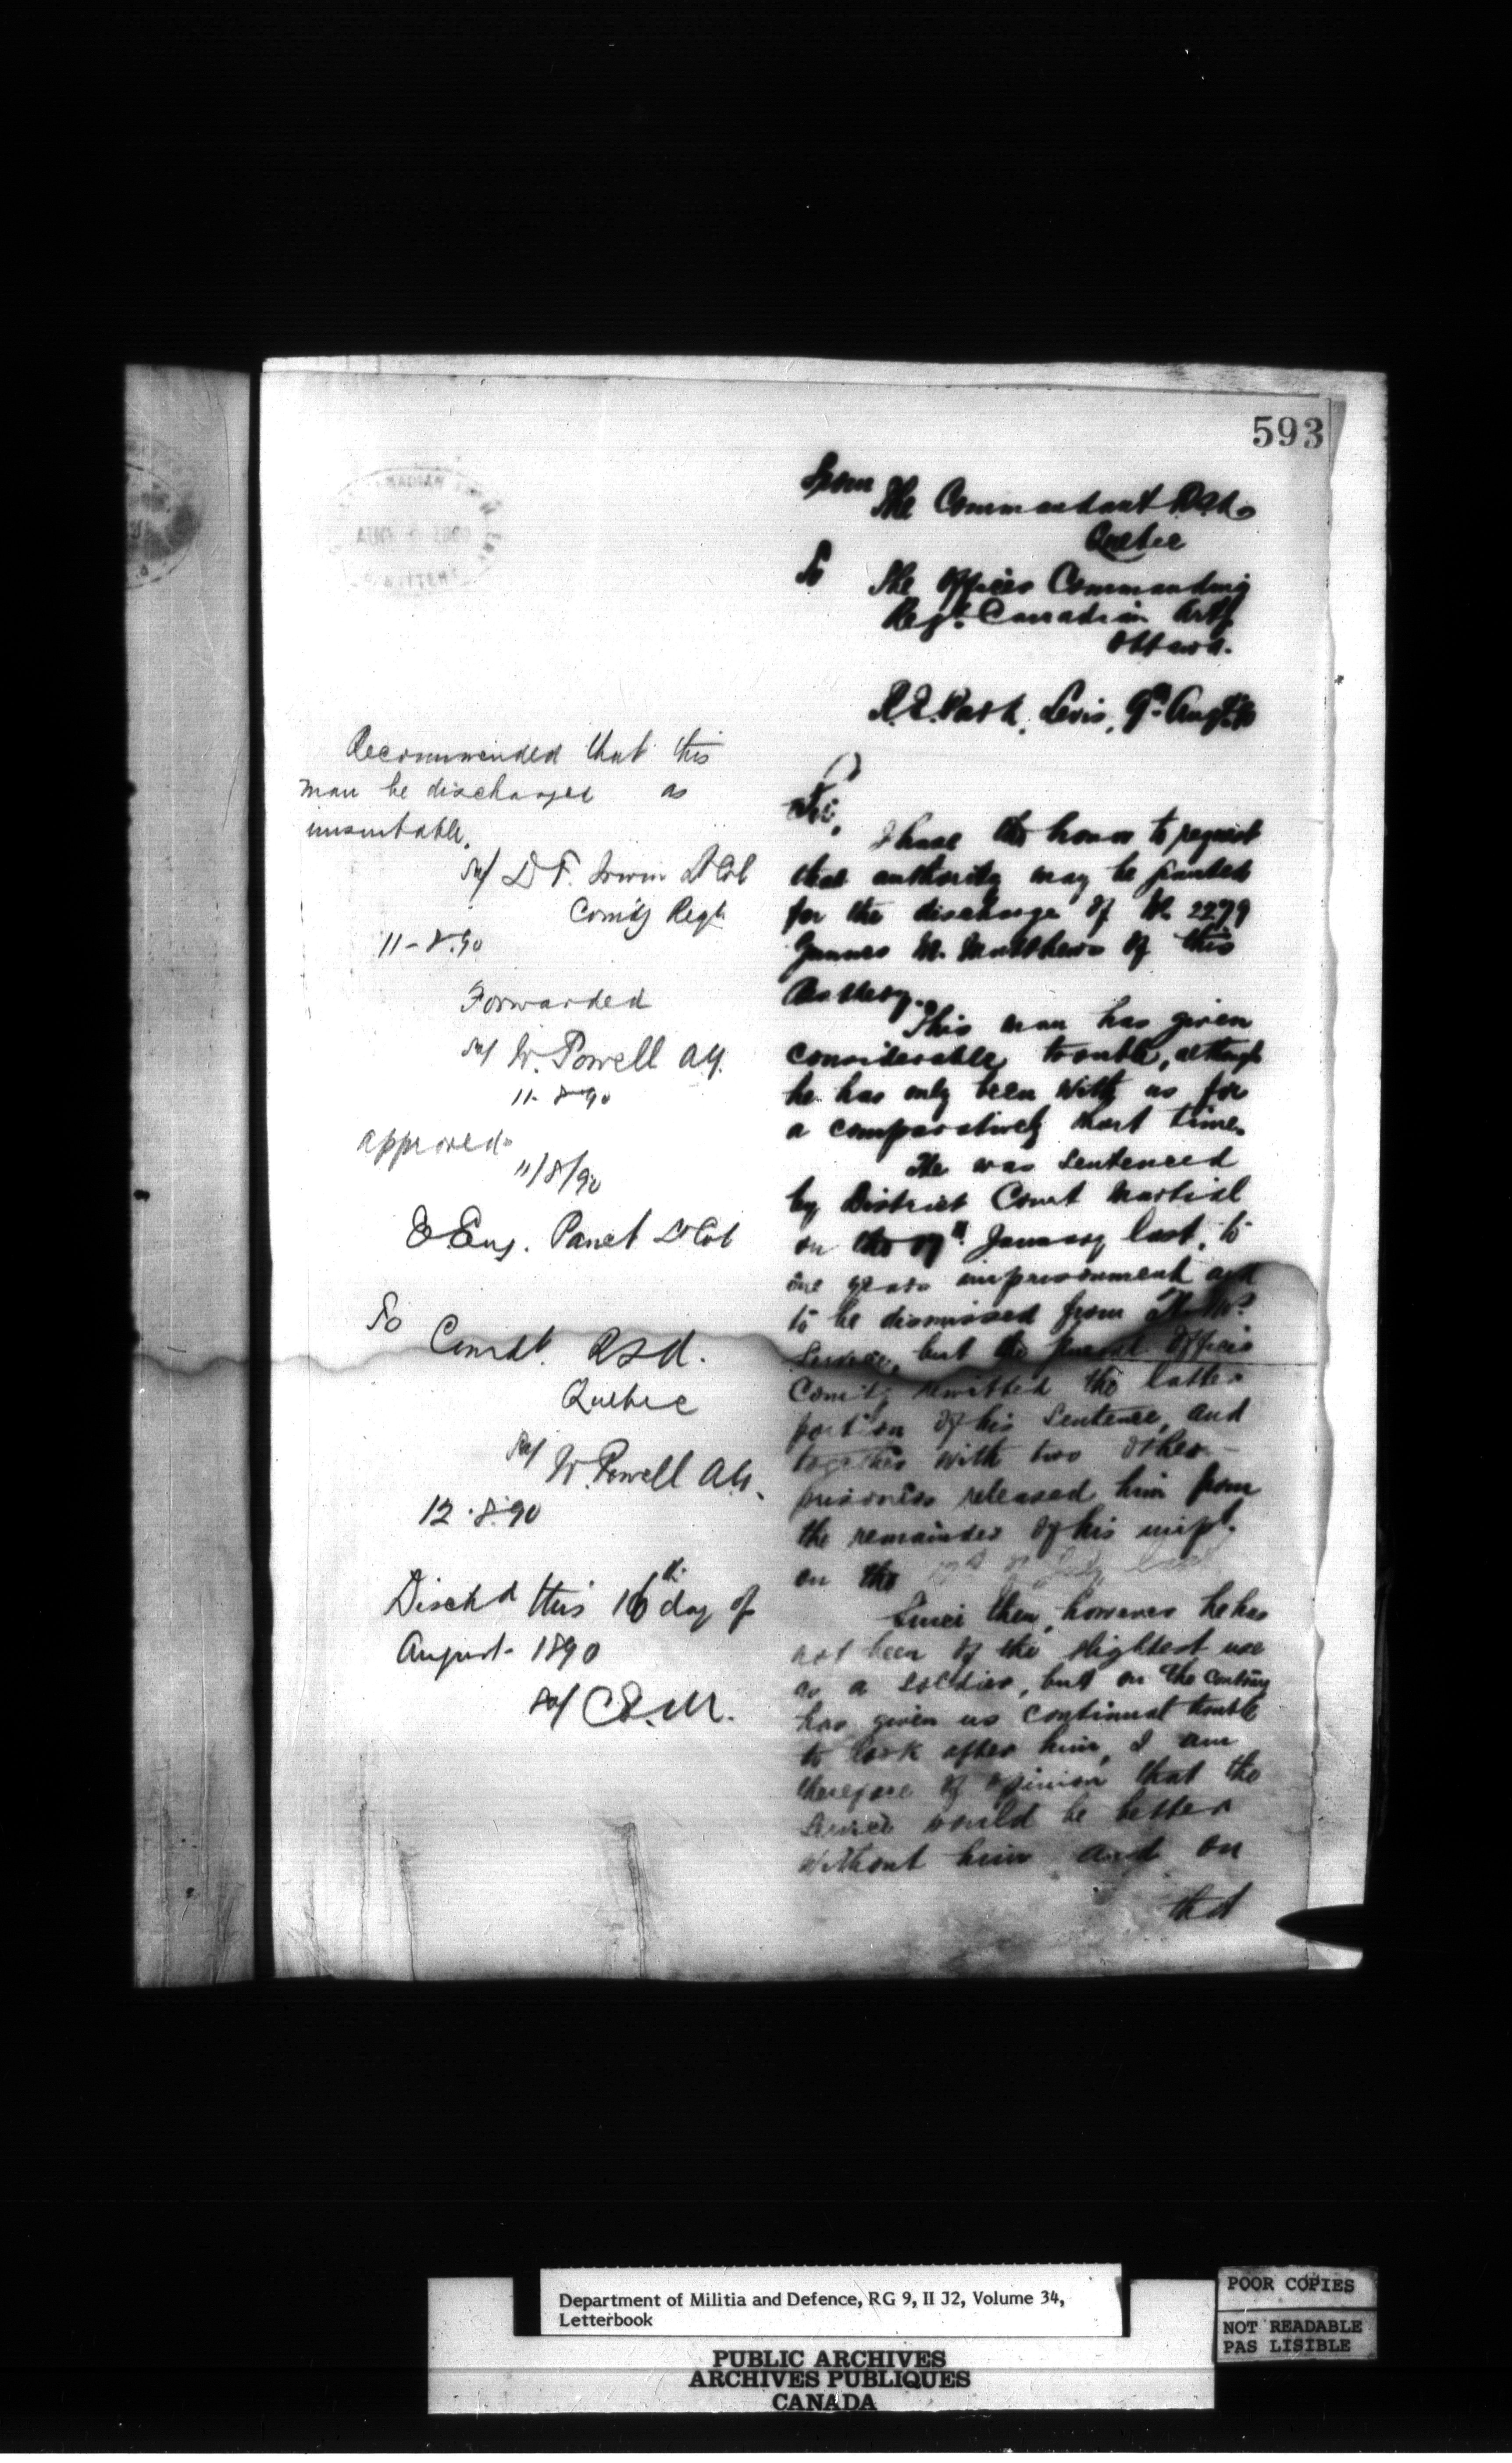 593
From The Commandant RSA
Quebec
To The Officer Commanding
Regt. Canadian Arty
Ottawa.
Levis, 9th Augt 90
Sir,
I have the honor to request
that authority may be granted
for the discharge of No 2279
Gunner W. Matthews of this
Battery.
This man has given
considerable trouble, although
he has only been with us for
a comparatively short time.
He was sentenced
by District Court Martial
on the January last, to
one years imprisonment and
to be dismissed from
Service, but the General Officer
Comdg remitted the latter
portion of his Sentence, and
together with two other
prisoners released him from
the remainder of his impt.
on the 17th of July last
Since then, however he has
not been of the slightest use
as a Soldier, but on the contrary
has given us continual trouble
to look after him, I am
therefore of opinion that the
Service would be better
without him and on
that
Recommended that this
man be discharged as
unsuitable.
Sd/ D T. Irwin Lt Col
Comdg Regt
11-8.90
Forwarded
Sd/ W. Powell AG.
11-8-90
approved
11/8/90
Eug. Panet Lt Col
To Comdt. RSA.
Quebec
Sd/ W. Powell AG.
12.8.90
Dischd this 16th day of
August 1890
Sd/
Department of Militia and Defence, RG 9, II J2, Volume 34,
Letterbook
PUBLIC ARCHIVES
ARCHIVES PUBLIQUES
CANADA
POOR COPIES
NOT READABLE
PAS LISIBLE